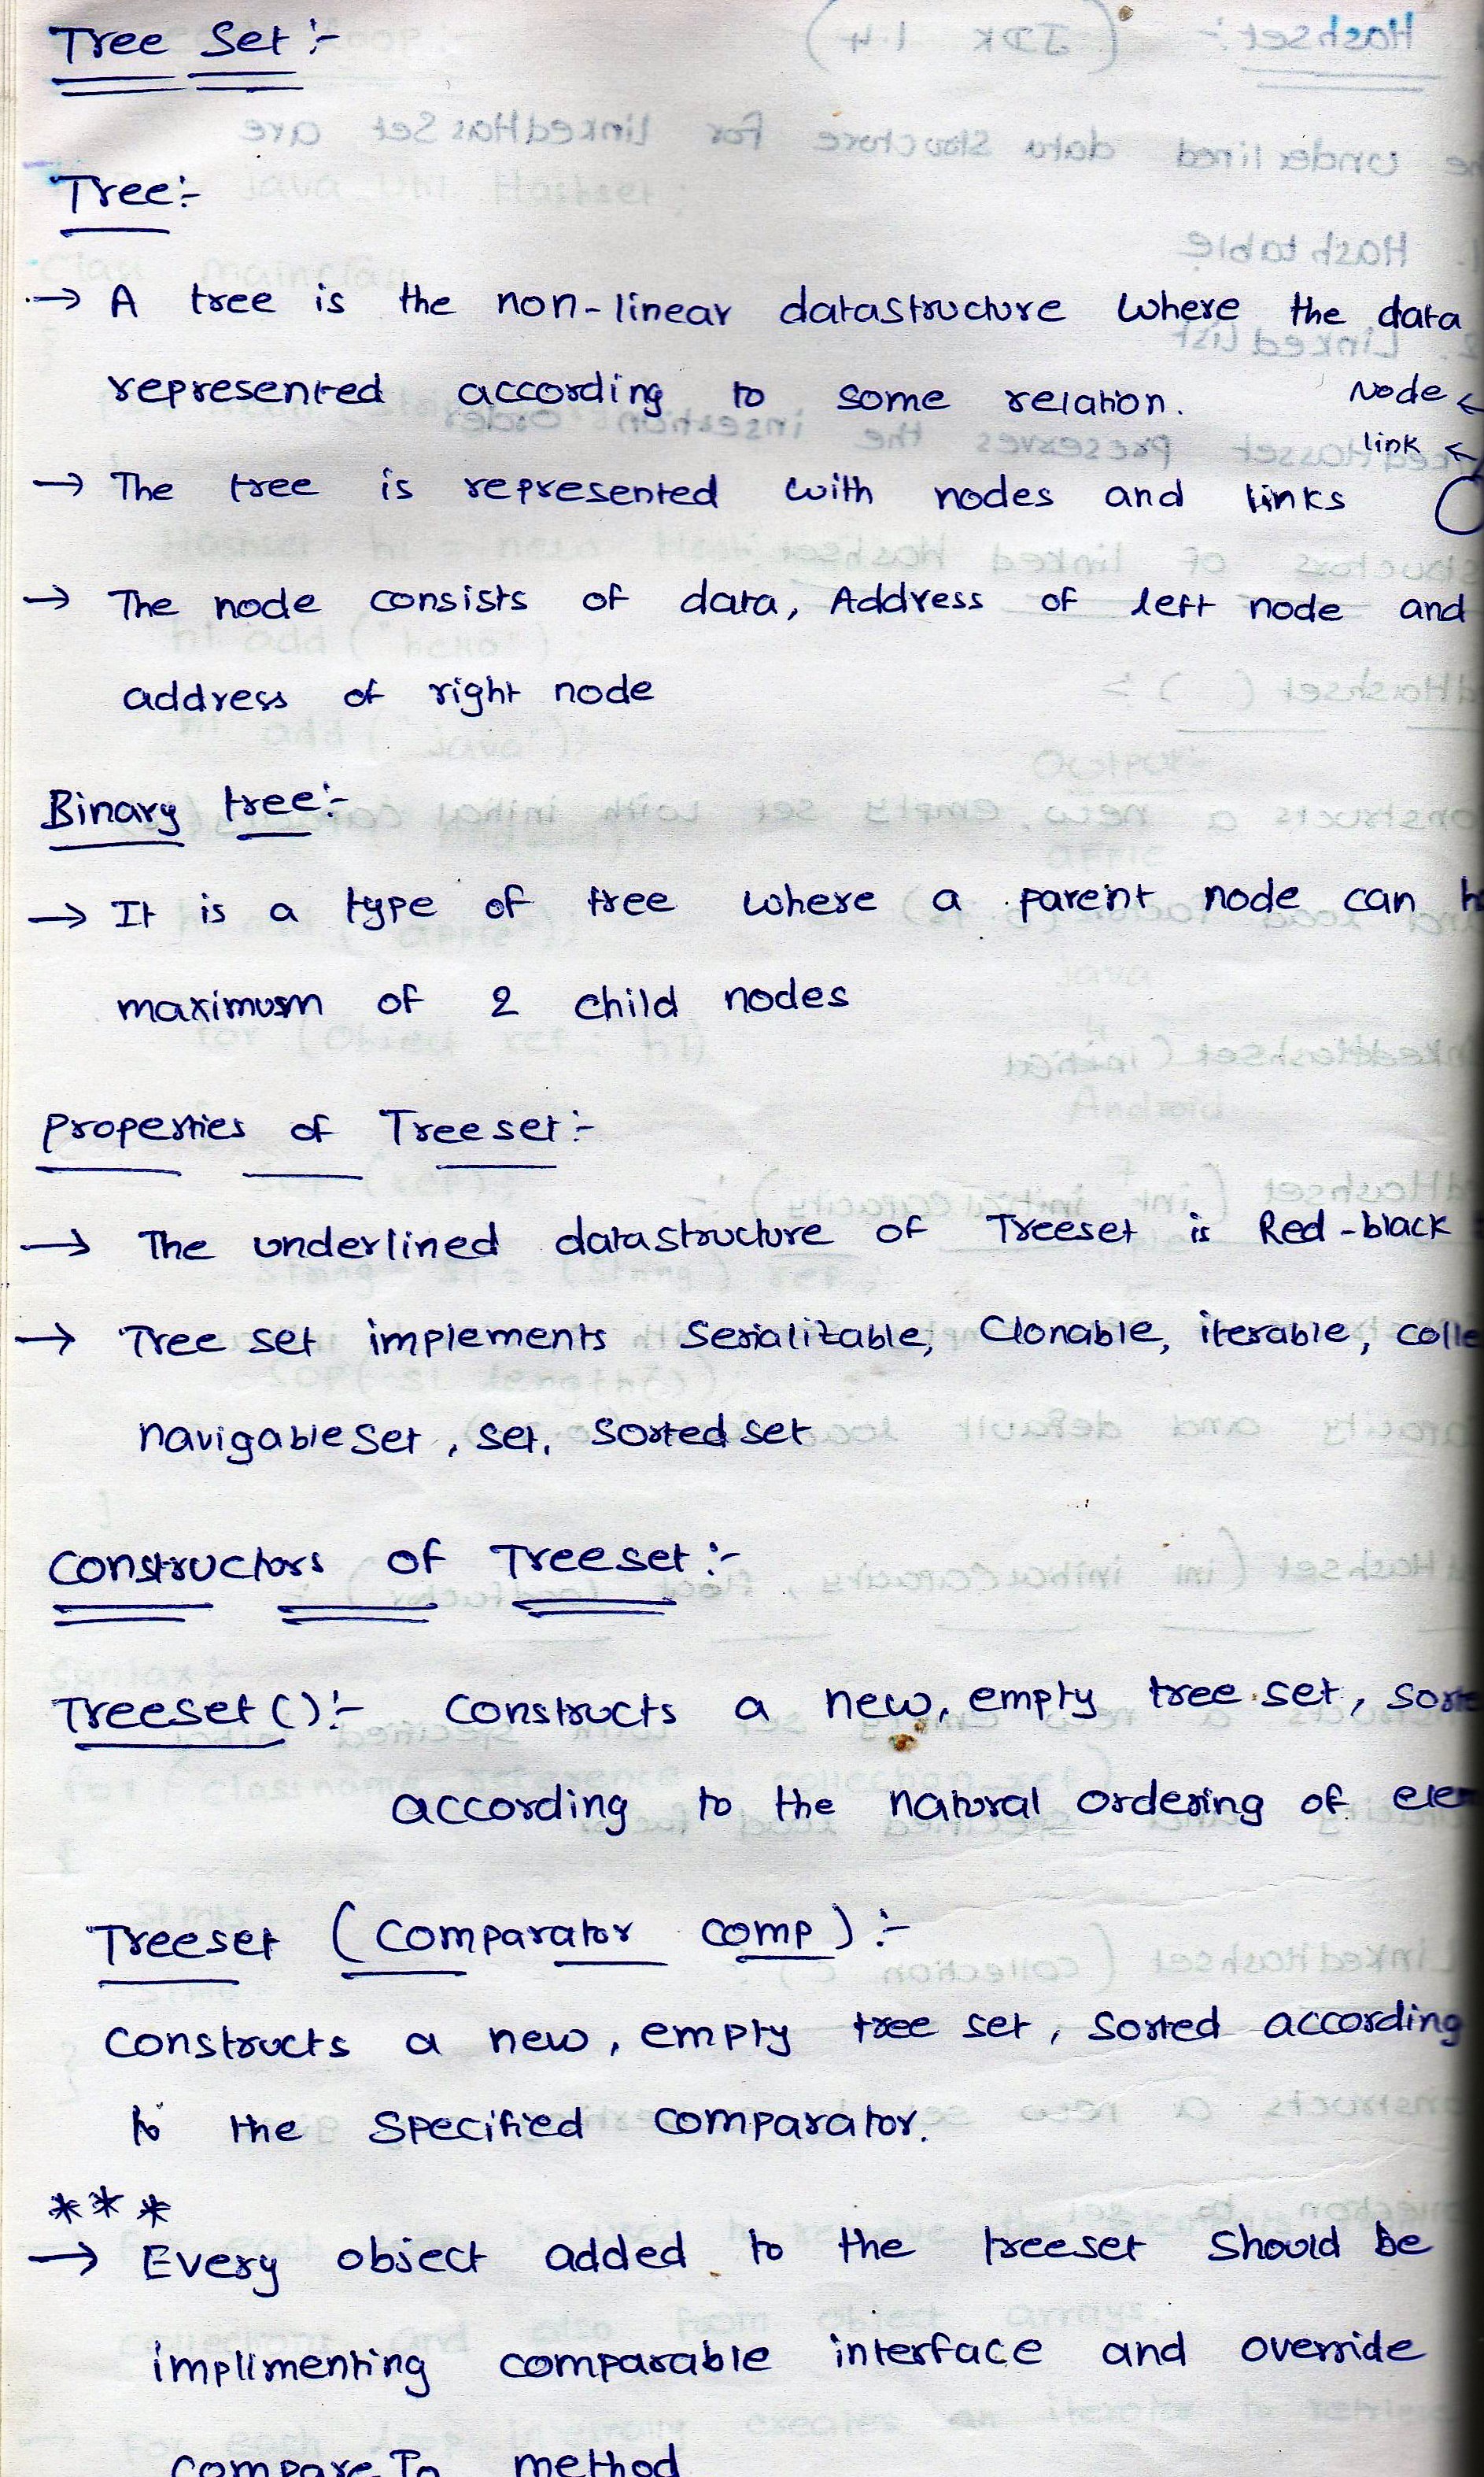 Tree Set :-
Tree:-
→ A tree is the non-linear datastructure where the data
represented according to some relation. Node ←
link ←
→ The tree is represented with nodes and links
→ The node consists of data, Address of left node and
address of right node
Binary tree:-
→ It is a type of tree where a parent node can
maximum of 2 child nodes
Properties of Treeset:-
→ The underlined datastructure of Treeset is Red-black
→ Tree set implements Serializable, Clonable, iterable, colle
navigableSet, set, Sortedset
Constructors of Treeset:-
Treeset():- Constructs a new, empty tree set, sorte
according to the natural ordering of elem
Treeset (Comparator comp) :-
Constructs a new, empty tree set, sorted according
to the specified comparator.
***
→ Every object added to the treeset should be
implimenting comparable interface and override
compareTo method